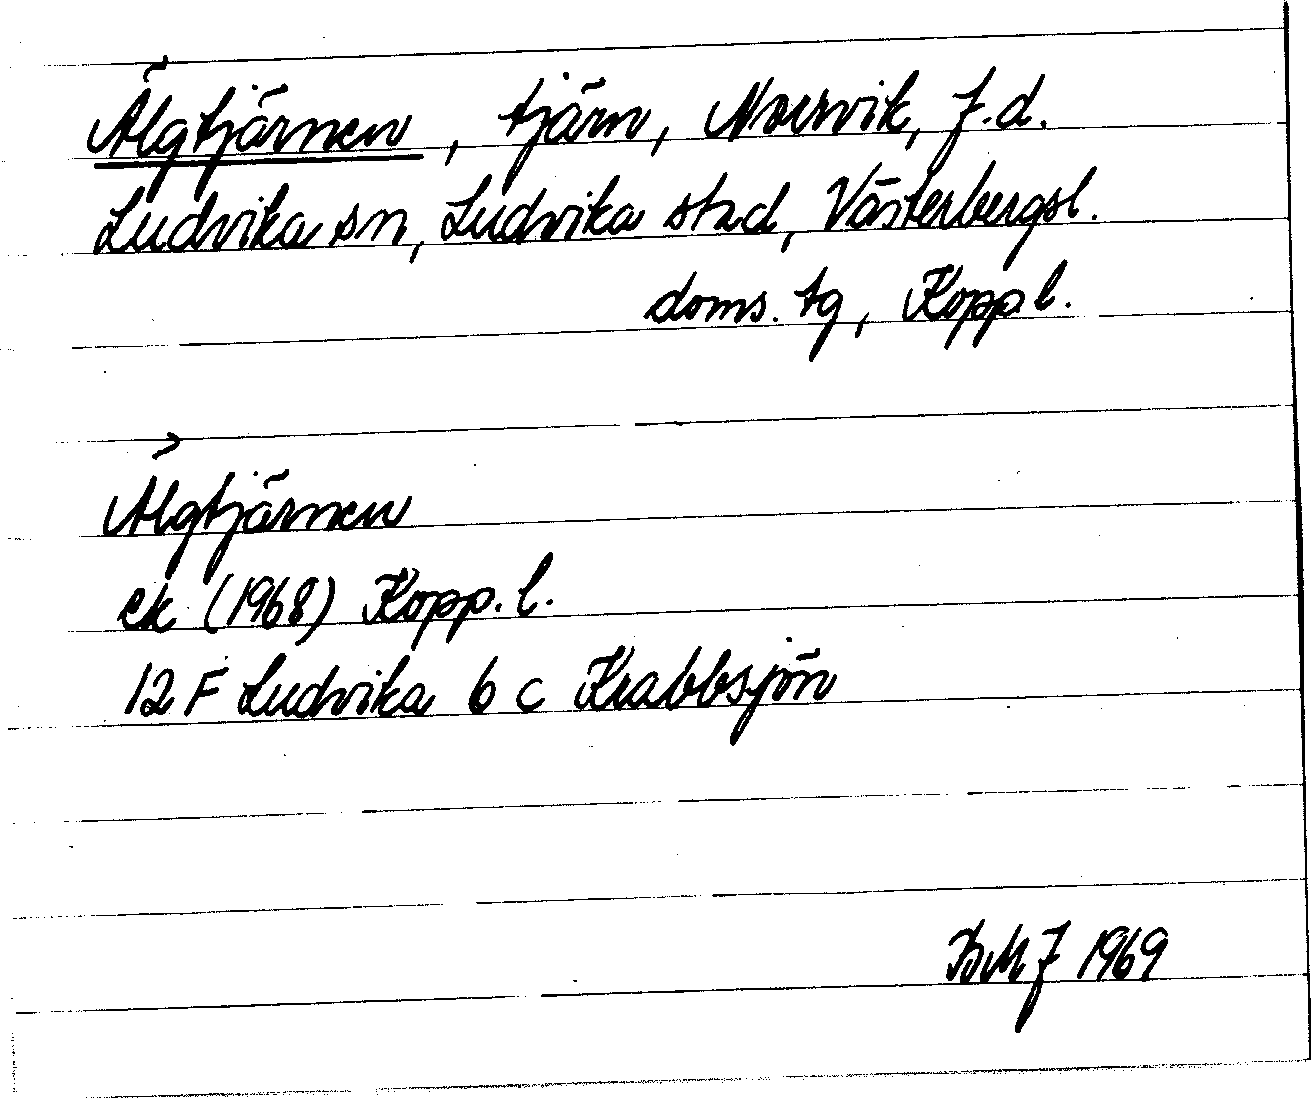 Älgtjärnen, tjärn, Norrvik, f.d.
Ludvika sn, Ludvika stad, Västerbergsl.
doms. tg, Kopp.l.
Älgtjärnen
ek (1968) Kopp.l.
12 F Ludvika 6 c Krabbsjön
BMJ 1969